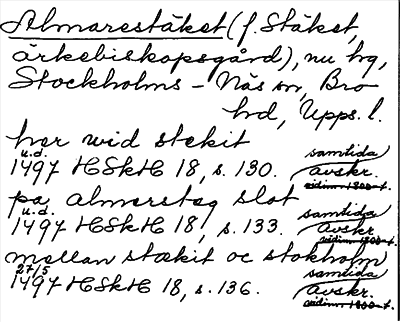 Almarestäket (f. Stäket,
ärkebiskopsgård), nu hg,
Stockholms-Näs sn, Bro
hd, Upps. l.
her wid stækit
u.d. samtida
1497 HSkH 18, s. 130. avskr.
vidim. 1800-t.
pa almersteg slot
u.d. samtida
1497 HSkH 18, s. 133. avskr.
vidim. 1800-t.
mellan stækit oc stokholm
27/5 samtida
1497 HSkH 18, s. 136. avskr.
vidim. 1800-t.